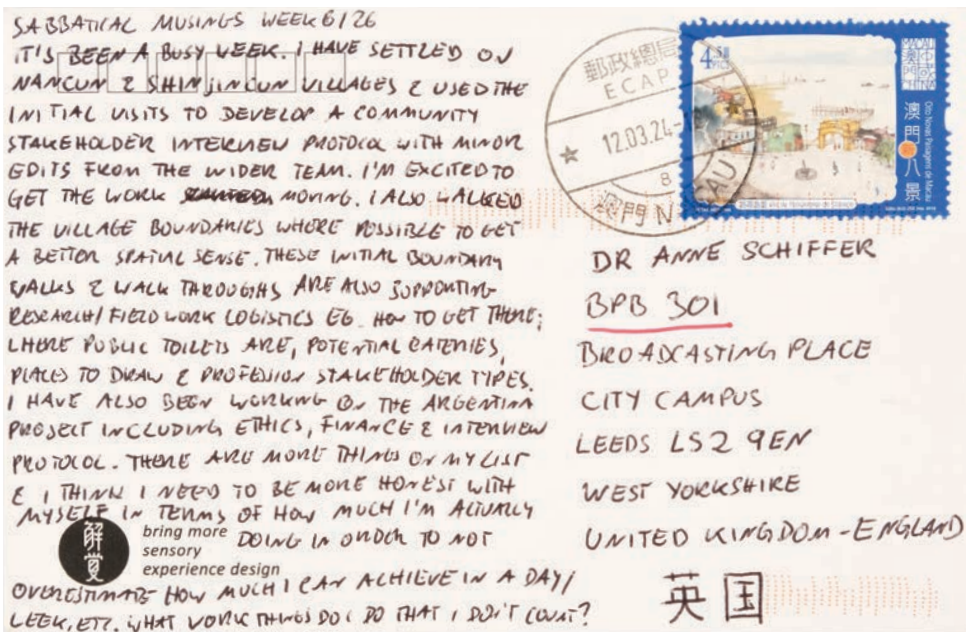 SABBATICAL MUSINGS WEEK 6/26
IT'S BEEN A BUSY WEEK. I HAVE SETTLED ON
NANCUN & SHINJINCUN VILLAGES & USED THE
INITIAL VISITS TO DEVELOP A COMMUNITY
STAKEHOLDER INTERVIEW PROTOCOL WITH MINOR
EDITS FROM THE WIDER TEAM. I'M EXCITED TO
GET THE WORK MOVING. I ALSO WALKED
THE VILLAGE BOUNDARIES WHERE POSSIBLE TO GET
A BETTER SPATIAL SENSE. THESE INITIAL BOUNDARY
WALKS & WALK THROUGHS ARE ALSO SUPPORTING
RESEARCH/FIELDWORK LOGISTICS EG. HOW TO GET THERE;
WHERE PUBLIC TOILETS ARE, POTENTIAL EATERIES,
PLACES TO DRAW & PROFESSION STAKEHOLDER TYPES.
I HAVE ALSO BEEN WORKING ON THE ARGENTINA
PROJECT INCLUDING ETHICS, FINANCE & INTERVIEW
PROTOCOL. THERE ARE MORE THINGS ON MY LIST
& I THINK I NEED TO BE MORE HONEST WITH
MYSELF IN TERMS OF HOW MUCH I'M ACTUALLY
DOING IN ORDER TO NOT
OVERESTIMATE HOW MUCH I CAN ACHIEVE IN A DAY/
WEEK, ETC. WHAT WORK THINGS DO I DO THAT I DON'T COUNT?
解覚
bring more
sensory
experience design
郵政總局
ECAP
12.03.24
8
澳門 MACAU
4.50
PTCS
MACAU
CHINA
澳門八景
Oito Novas Paisagens de Macau
DR ANNE SCHIFFER
BPB 301
BROADCASTING PLACE
CITY CAMPUS
LEEDS LS2 9EN
WEST YORKSHIRE
UNITED KINGDOM - ENGLAND
英国